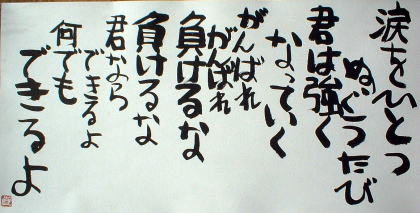 涙をひとつ
ぬぐうたび
君は強く
なっていく
がんばれ
がんばれ
負けるな
負けるな
君なら
できるよ
何でも
できるよ